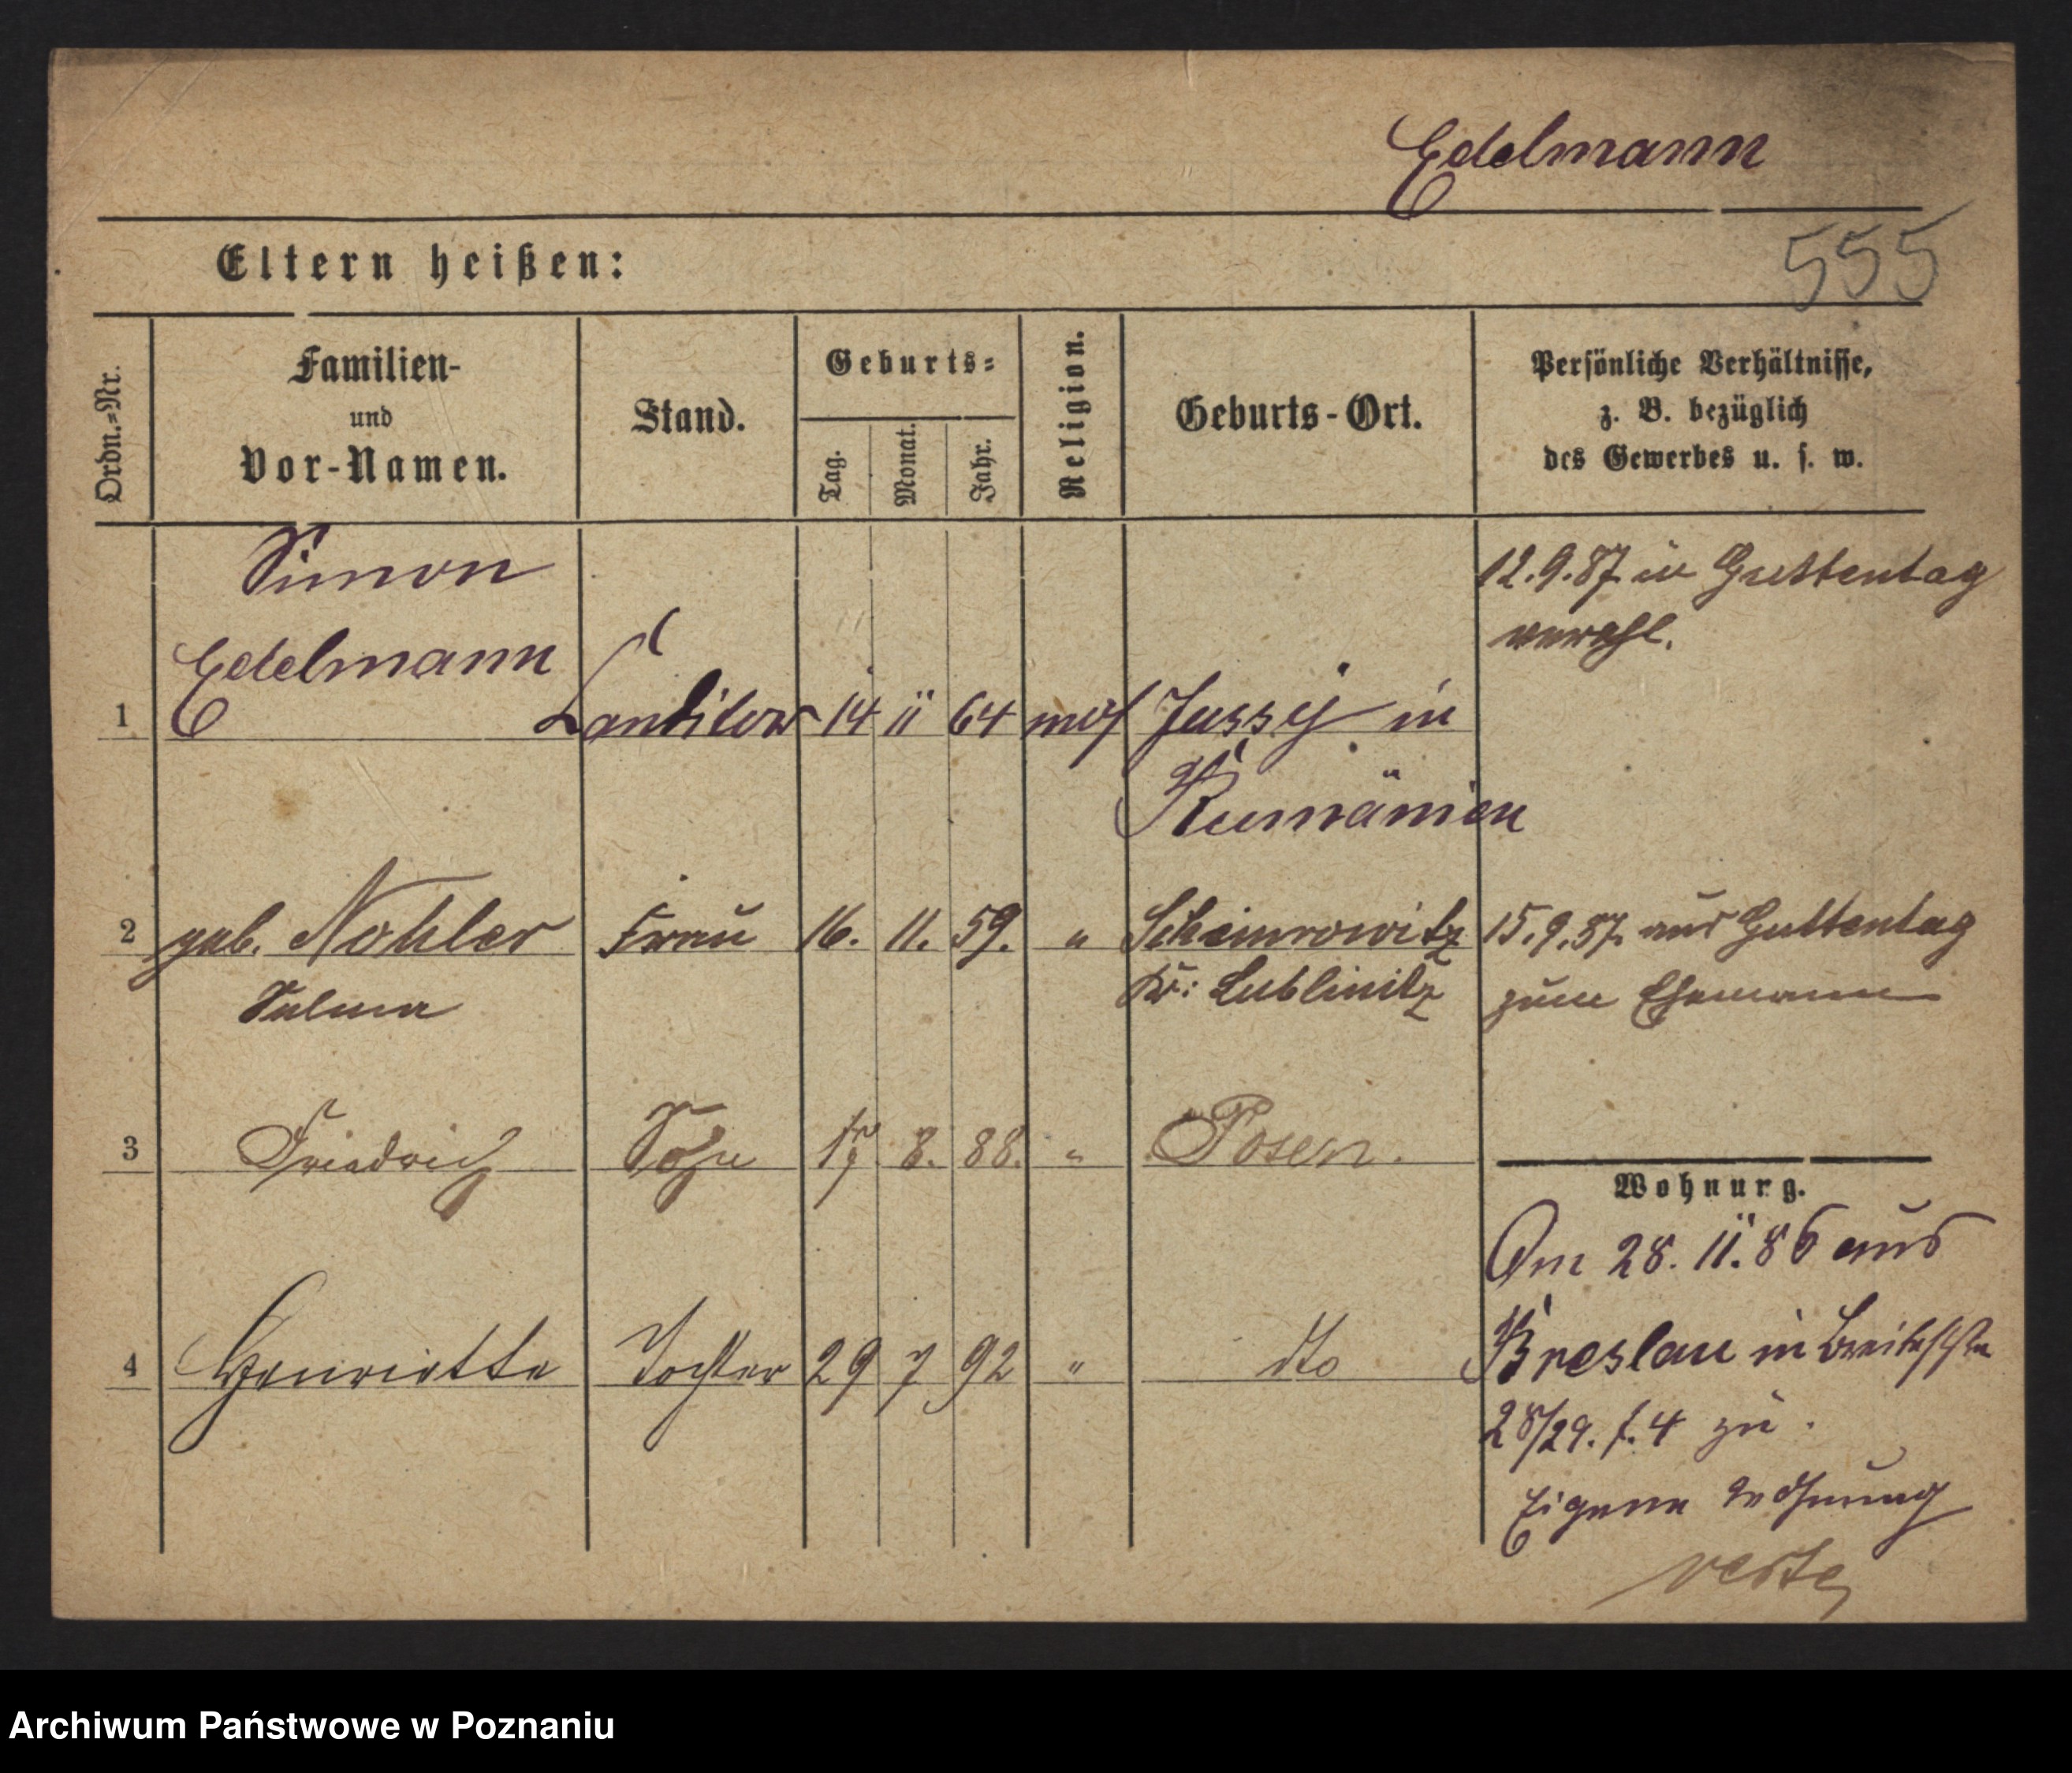 Edelmann
555
Eltern heißen:
Ordn.=Nr.
Familien-
und
Vor-Namen.
Stand.
Geburts=
Tag.
Monat.
Jahr.
Religion.
Geburts-Ort.
Persönliche Verhältnisse,
z. B. bezüglich
des Gewerbes u. s. w.
Simon
Edelmann
1 Conditor 14 11 64 mos Jassy in
Rumänien
12.9.87 in Guttentag
verehl.
2 geb. Nohler Frau 16. 11. 59. " Schemrowitz 15.9.87. aus Guttentag
Selma Kr: Lublinitz zum Ehemann
3 Friedrich Sohn 8. 88. " Posen.
Wohnung.
Am 28. 11. 86 aus
4 Henriette Tochter 29 7 92 " dto
Breslau in Breitestr
28/29. 4 zu.
Eigene Wohnung
verte
Archiwum Państwowe w Poznaniu